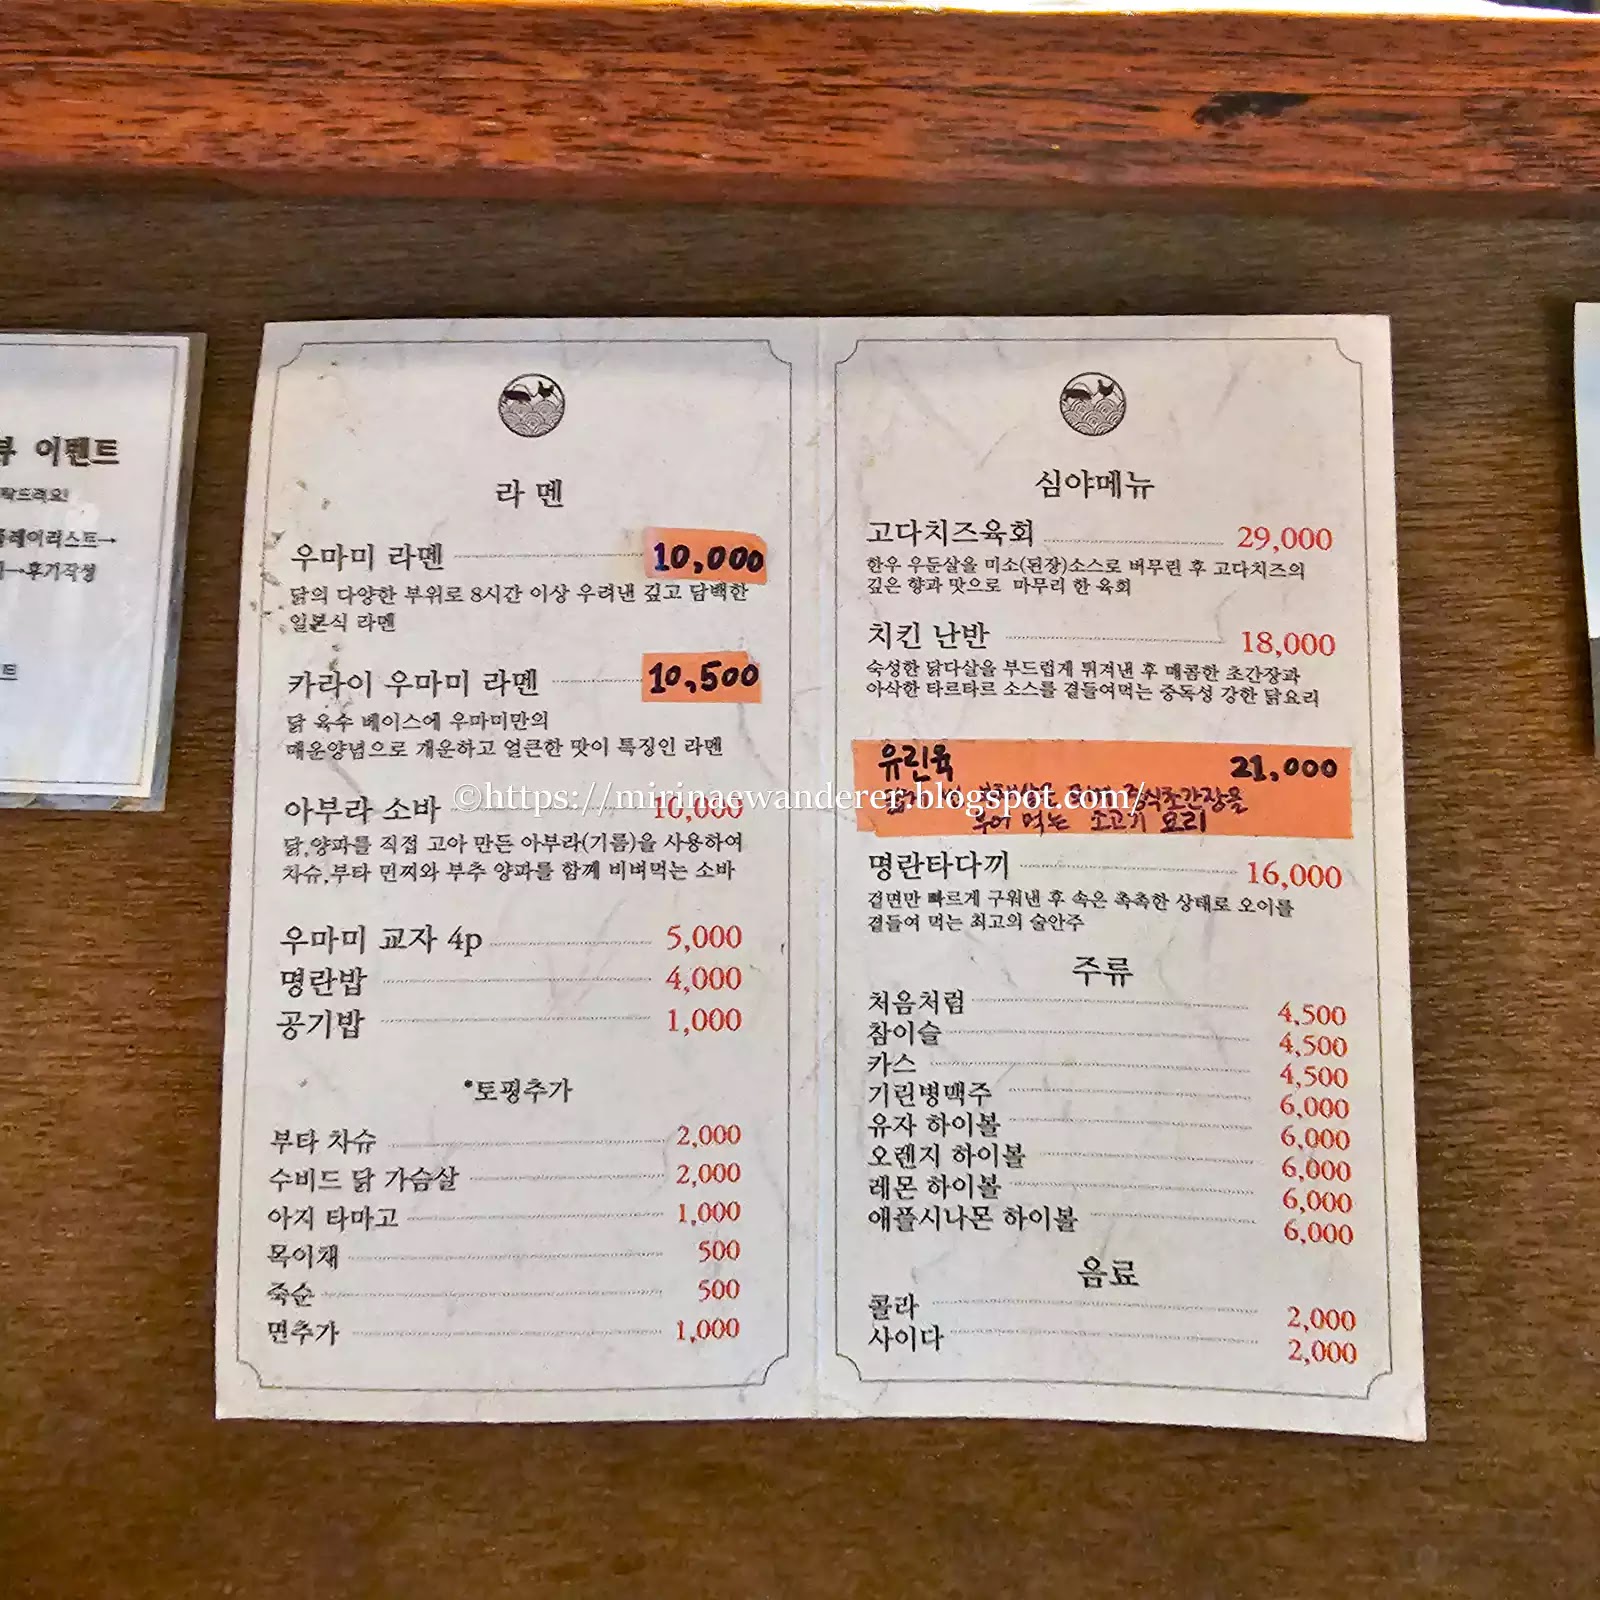 이벤트
탁드려요!
플레이리스트→
→후기작성
트
라멘
우마미 라멘 10,000
닭의 다양한 부위로 8시간 이상 우려낸 깊고 담백한
일본식 라멘
카라이 우마미 라멘 10,500
닭 육수 베이스에 우마미만의
매운양념으로 개운하고 얼큰한 맛이 특징인 라멘
아부라 소바 10,000
닭,양파를 직접 고아 만든 아부라(기름)을 사용하여
차슈,부타 민찌와 부추 양파를 함께 비벼먹는 소바
우마미 교자 4p 5,000
명란밥 4,000
공기밥 1,000
*토핑추가
부타 차슈 2,000
수비드 닭 가슴살 2,000
아지 타마고 1,000
목이채 500
죽순 500
면추가 1,000
심야메뉴
고다치즈육회 29,000
한우 우둔살을 미소(된장)소스로 버무린 후 고다치즈의
깊은 향과 맛으로 마무리 한 육회
치킨 난반 18,000
숙성한 닭다살을 부드럽게 튀겨낸 후 매콤한 초간장과
아삭한 타르타르 소스를 곁들여먹는 중독성 강한 닭요리
유린육 21,000
중식초간장을
부어 먹는 소고기 요리
명란타다끼 16,000
겉면만 빠르게 구워낸 후 속은 촉촉한 상태로 오이를
곁들여 먹는 최고의 술안주
주류
처음처럼 4,500
참이슬 4,500
카스 4,500
기린병맥주 6,000
유자 하이볼 6,000
오렌지 하이볼 6,000
레몬 하이볼 6,000
애플시나몬 하이볼 6,000
음료
콜라 2,000
사이다 2,000
©https://mirinaewanderer.blogspot.com/